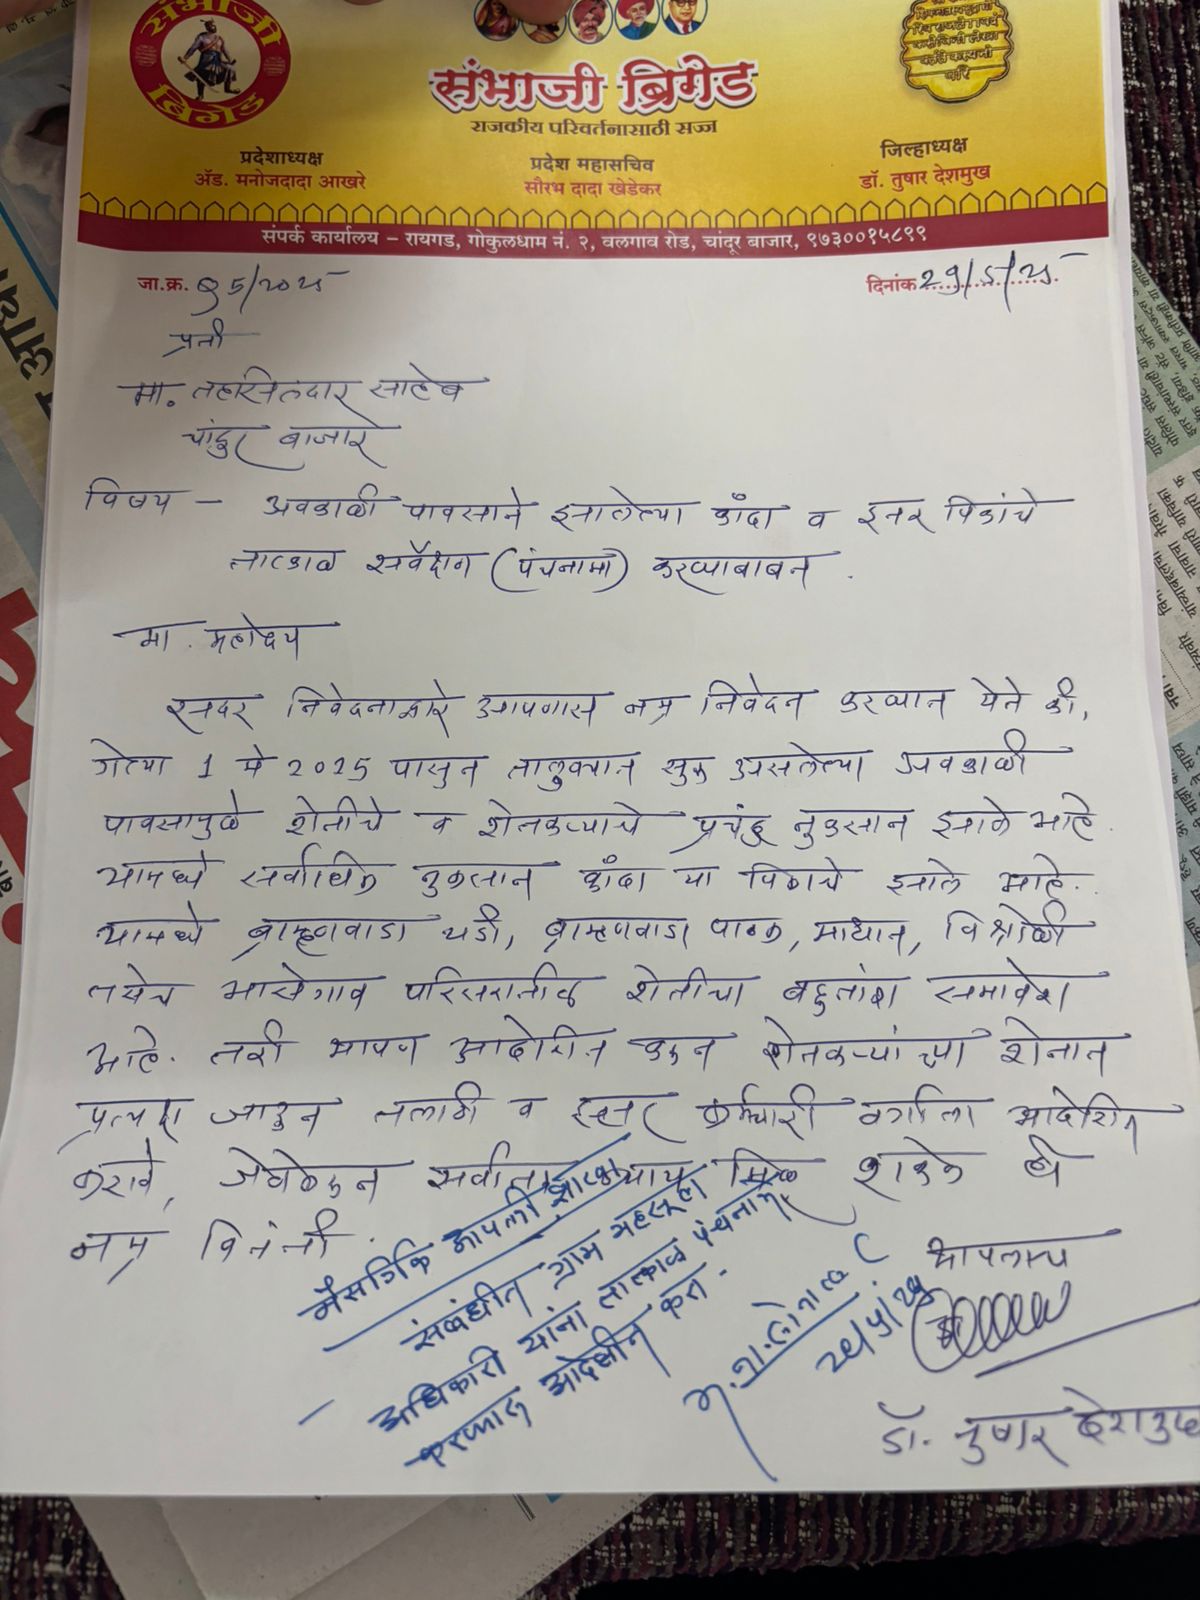 संभाजी ब्रिगेड
संभाजी ब्रिगेड
राजकीय परिवर्तनासाठी सज्ज
प्रदेशाध्यक्ष
अ‍ॅड. मनोजदादा आखरे
प्रदेश महासचिव
सौरभ दादा खेडेकर
जिल्हाध्यक्ष
डॉ. तुषार देशमुख
संपर्क कार्यालय – रायगड, गोकुलधाम नं. २, वलगाव रोड, चांदूर बाजार, ९७३००१५८९९
जा.क्र. /2025
दिनांक 29/5/25
प्रती
मा. तहसिलदार साहेब
चांदुर बाजार
विषय – अवकाळी पावसाने झालेल्या कांदा व इतर पिकांचे
तात्काळ सर्वेक्षण (पंचनामा) करण्याबाबत.
मा. महोदय
सदर निवेदनाद्वारे आपणास नम्र निवेदन करण्यात येते की,
गेल्या 1 मे 2025 पासुन तालुक्यात सुरू असलेल्या अवकाळी
पावसामुळे शेतीचे व शेतकऱ्याचे प्रचंड नुकसान झाले आहे.
यामध्ये सर्वाधिक नुकसान कांदा या पिकाचे झाले आहे.
यामध्ये ब्राम्हणवाडा थडी, ब्राम्हणवाडा पाठक, माधान, विश्रोळी
तसेच भासेगाव परिसरातील शेतीचा बहुतांश समावेश
आहे. तरी आपण आदेशित करून शेतकऱ्यांच्या शेतात
प्रत्यक्ष जाऊन तलाठी व इतर कर्मचारी वर्गाला आदेशित
करावे, जेणेकरून सर्वांना न्याय मिळू शकेल ही
नम्र विनंती.
नैसर्गिक आपत्ती शाखा
संबंधीत ग्राम महसूल
अधिकारी यांना तात्काळ पंचनामे
करण्यास आदेशीत करा.
आपलाच
डॉ. तुषार देशमुख